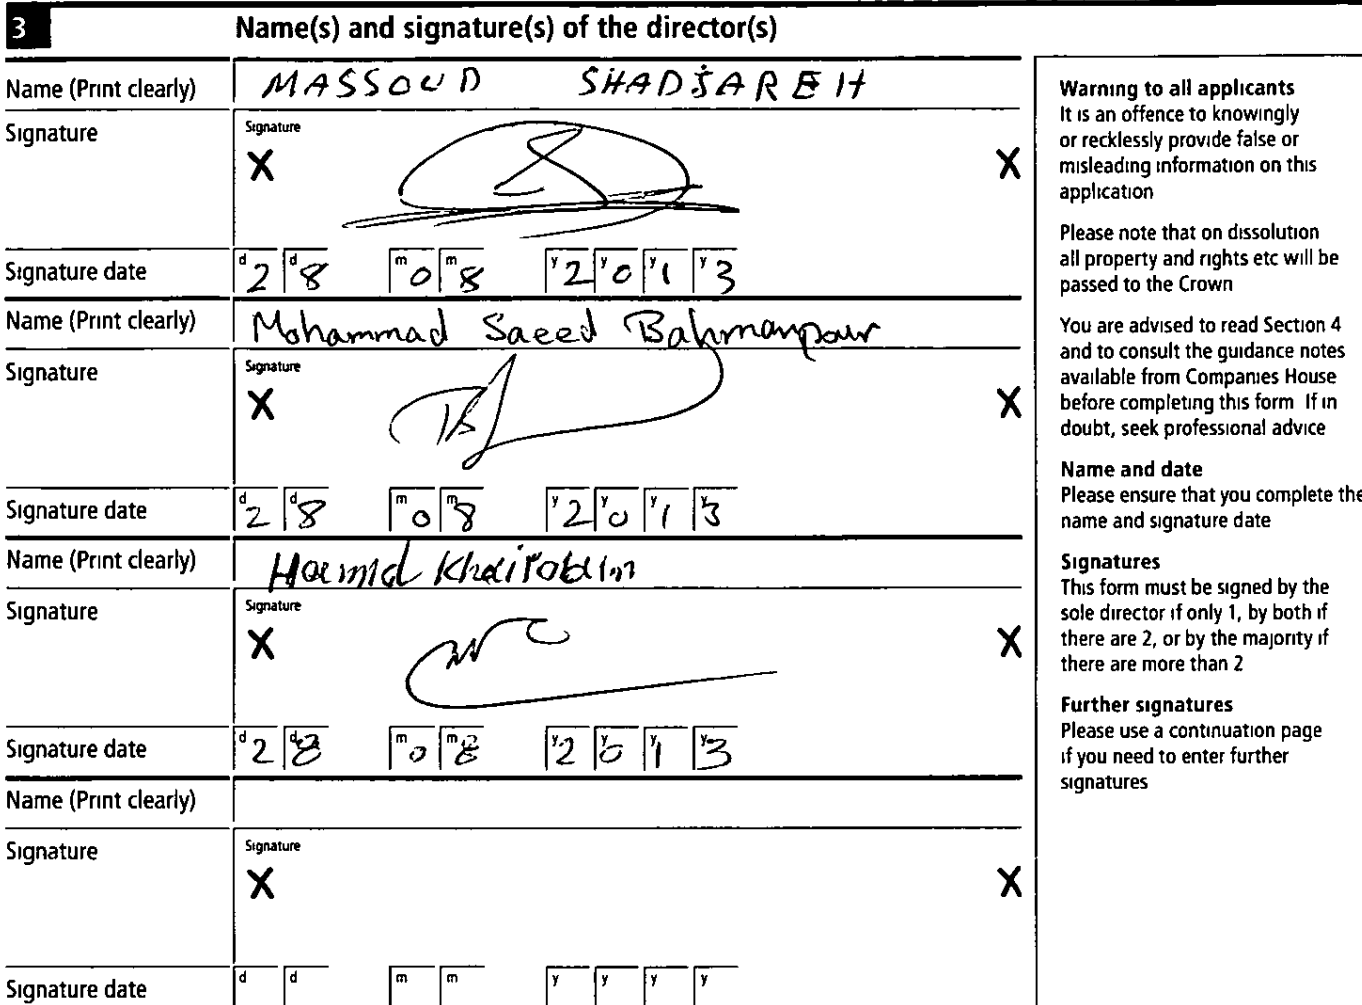 3 Name(s) and signature(s) of the director(s)
Name (Print clearly) MASSOUD SHADJAREH
Signature Signature
X X
Signature date d 2 d 8 m 0 m 8 y 2 y 0 y 1 y 3
Name (Print clearly) Mohammad Saeed Bahmanpour
Signature Signature
X X
Signature date d 2 d 8 m 0 m 8 y 2 y 0 y 1 y 3
Name (Print clearly) Hamid Khairoldin
Signature Signature
X X
Signature date d 2 d 8 m 0 m 8 y 2 y 0 y 1 y 3
Name (Print clearly)
Signature Signature
X X
Signature date d d m m y y y y
Warning to all applicants
It is an offence to knowingly
or recklessly provide false or
misleading information on this
application
Please note that on dissolution
all property and rights etc will be
passed to the Crown
You are advised to read Section 4
and to consult the guidance notes
available from Companies House
before completing this form If in
doubt, seek professional advice
Name and date
Please ensure that you complete the
name and signature date
Signatures
This form must be signed by the
sole director if only 1, by both if
there are 2, or by the majority if
there are more than 2
Further signatures
Please use a continuation page
if you need to enter further
signatures